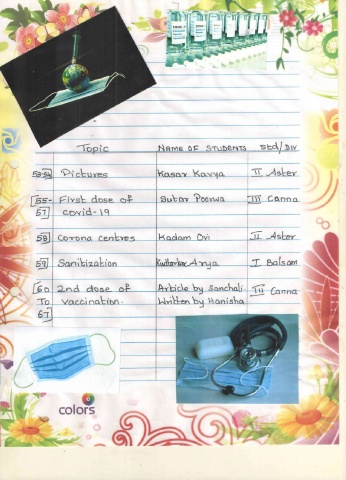 Topic NAME OF STUDENTS Std/Div
53-54 Pictures Kasar Kavya II Aster
55- First dose of Sutar Poorwa III Canna
57 covid-19
58 Corona centres Kadam Ovi II Aster
59 Sanitization Arya I Balsam
60 2nd dose of Article by Sanchali III Canna
To vaccination. Written by Manisha
67
colors